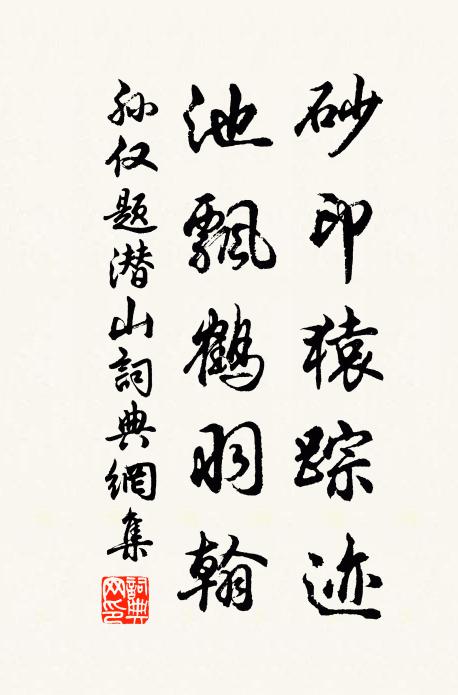 砂印猿踪迹
池飘鹤羽翰
孙仅题潜山詞典網集
詞典网印